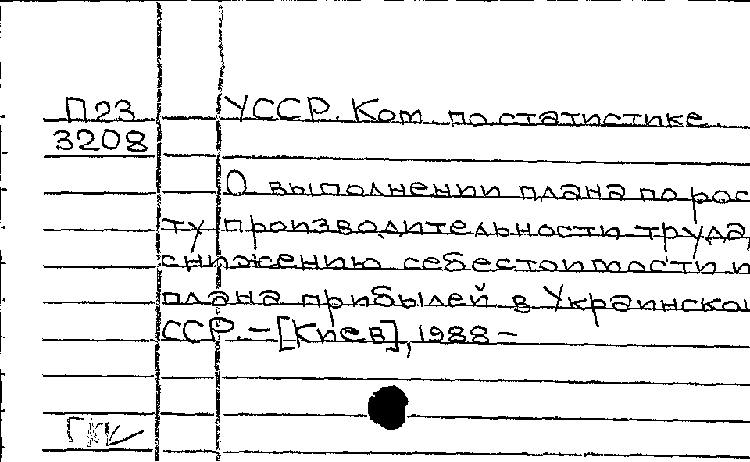 П23 УССР. Ком. по статистике.
3208
О выполнении плана по рос
ту производительности труда,
снижению себестоимости и
плана прибылей в Украинской
ССР. – [Киев], 1988 –
ГКК